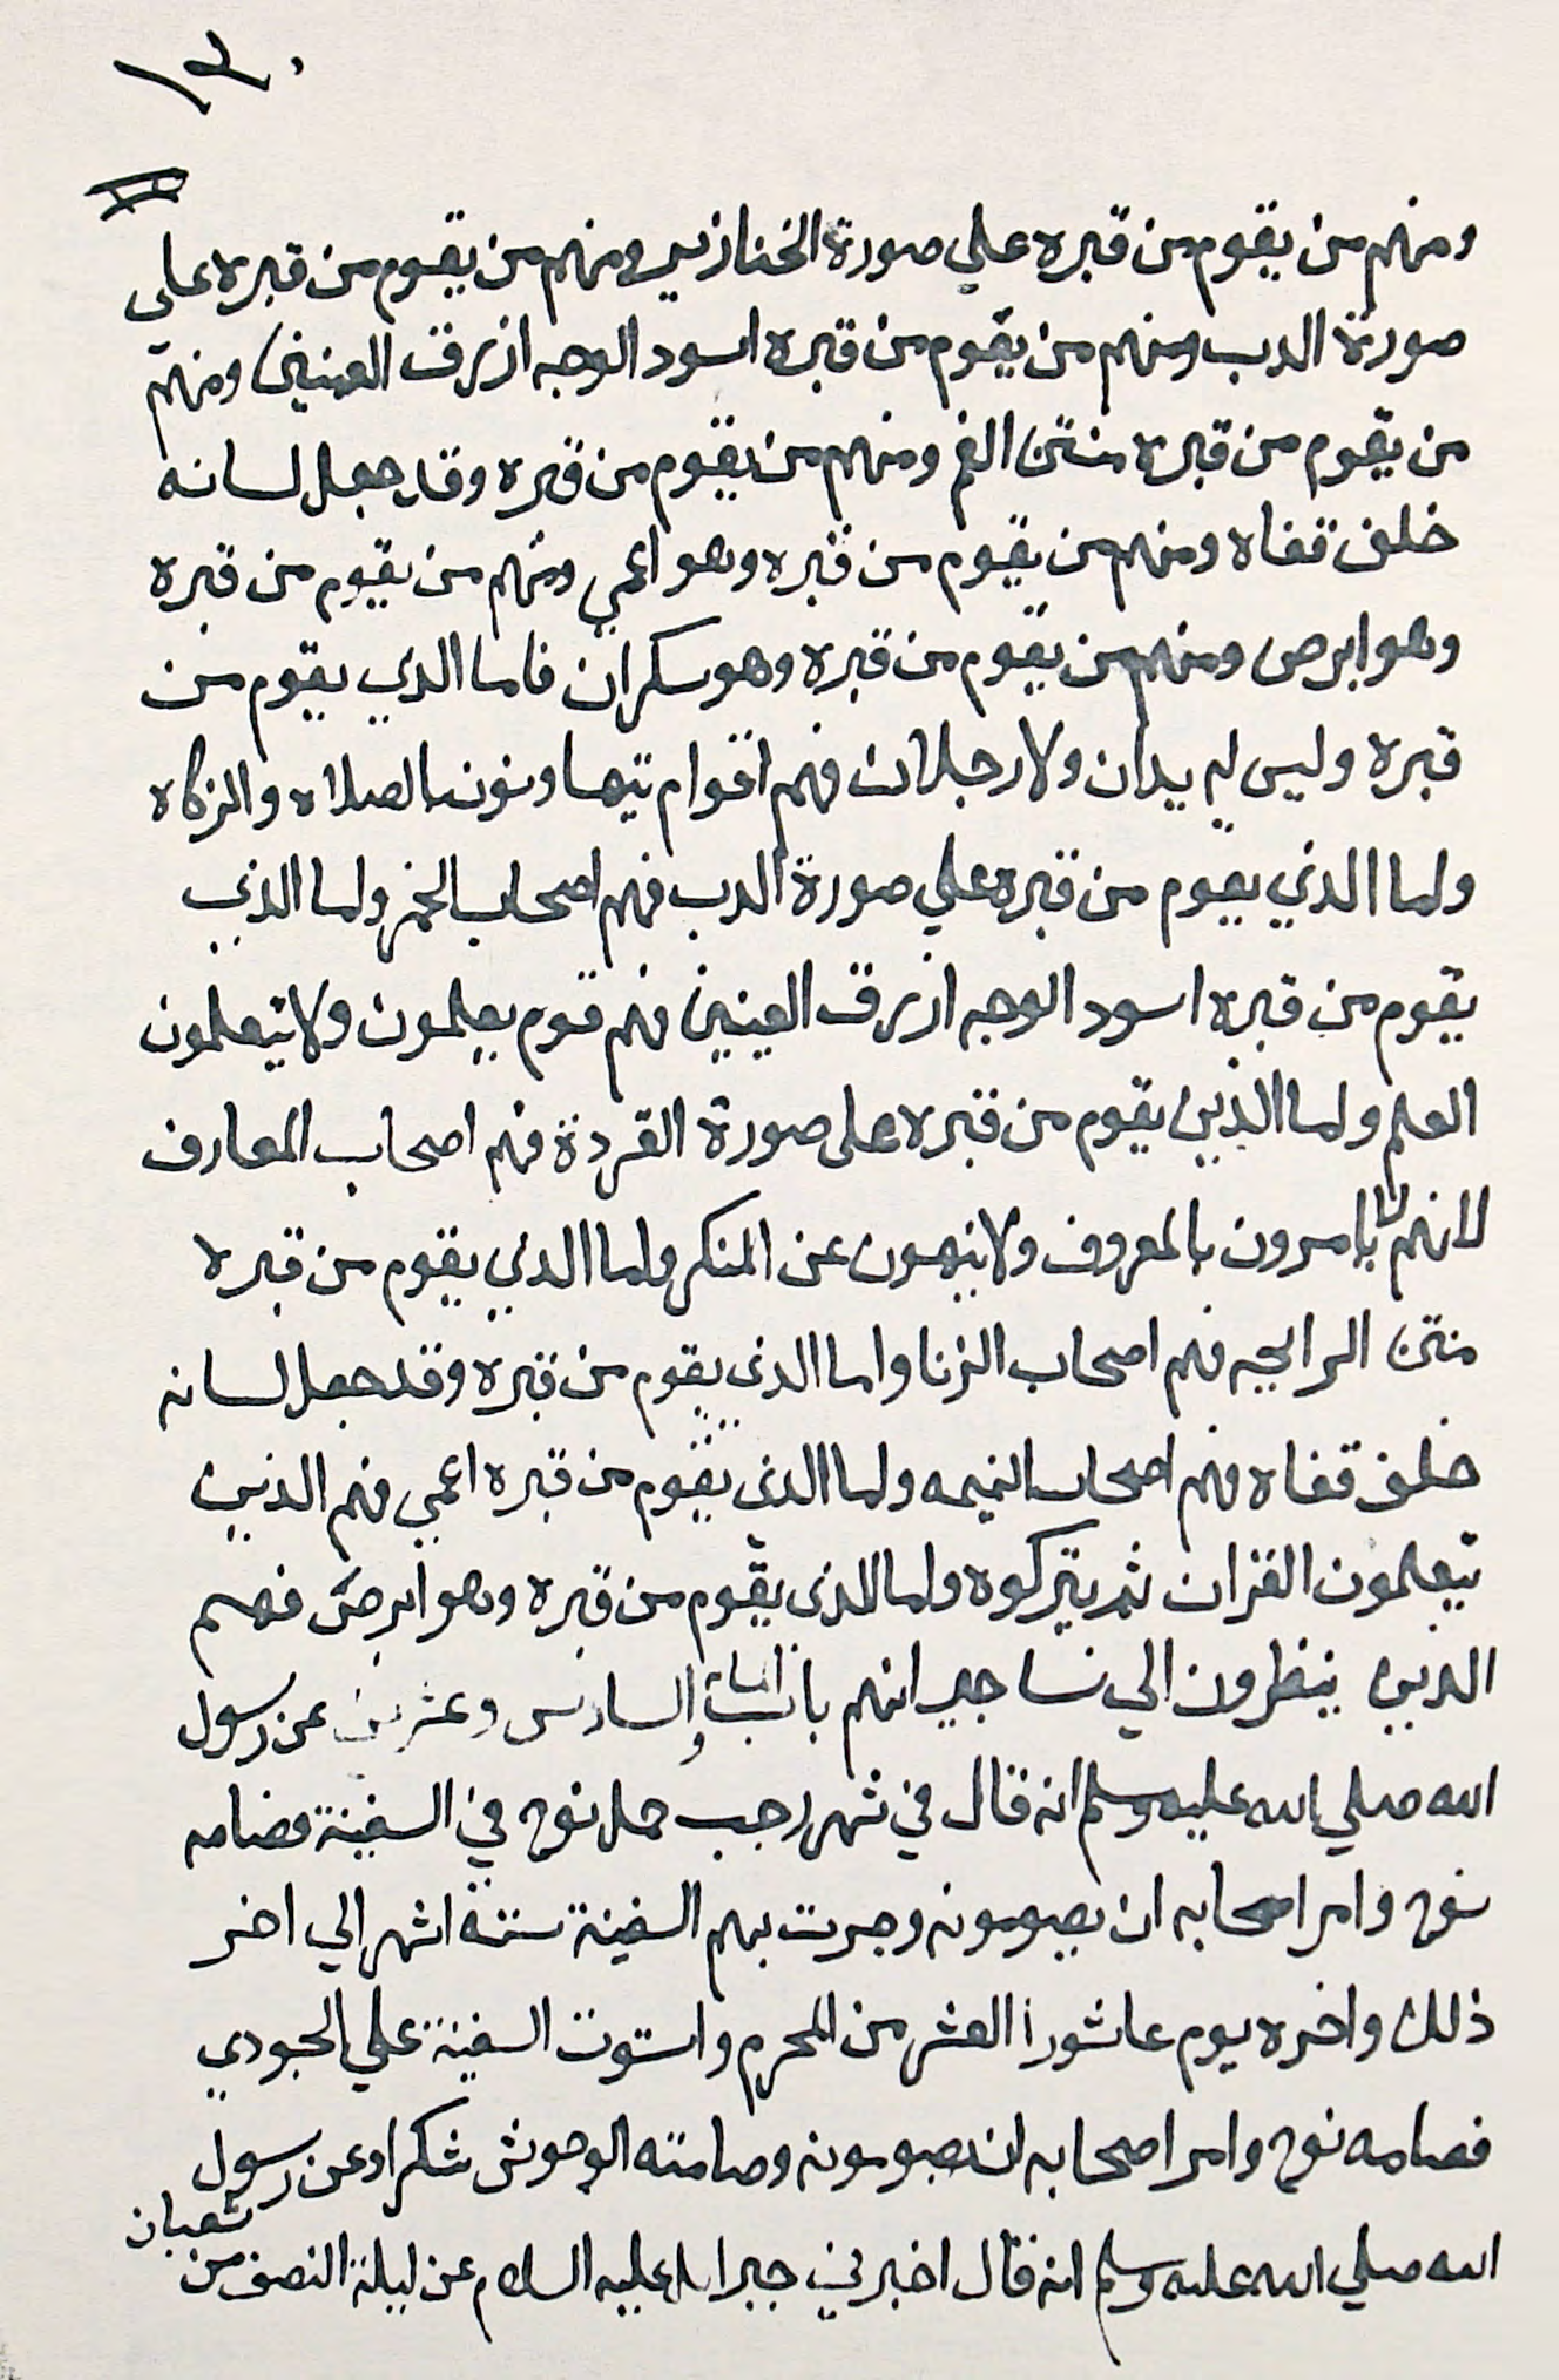 ١٣٠
ومنهم من يقوم من قبره علي صورة الخنازير ومنهم من يقوم من قبره علي
صورة الدب ومنهم من يقوم من قبره اسود الوجه ازرق العينين ومنهم
من يقوم من قبره منتن الفم ومنهم من يقوم من قبره وقد جعل لسانه
خلف قفاه ومنهم من يقوم من قبره وهو اعمي ومنهم من يقوم من قبره
وهو ابرص ومنهم من يقوم من قبره وهو سكران فاما الدي يقوم من
قبره وليس له يدان ولا رجلان فهم اقوام يتهاونون بالصلاه والزكاه
واما الدي يقوم من قبره علي صورة الدب فهم اصحاب الخمر واما الذي
يقوم من قبره اسود الوجه ازرق العينين فهم قوم يعلمون ولا يتعلمون
العلم واما الذين يقوم من قبره على صورة القردة فهم اصحاب المعارف
لانهم لا يامرون بالمعروف ولا ينهون عن المنكر واما الدي يقوم من قبره
منتن الرايحه فهم اصحاب الزنا واما الذى يقوم من قبره وقد جعل لسانه
خلف قفاه فهم اصحاب النميمه واما الذى يقوم من قبره اعمي فهم الذين
يتعلمون القران ثم يتركوه واما الذى يقوم من قبره وهو ابرص فهم
الذين ينظرون الي نسا جيرانهم والسادس وعشرين عن رسول
الله صلي الله عليه وسلم انه قال في شهر رجب حمل نوح في السفينة فصامه
نوح وامر اصحابه ان يصومونه وجرت بهم السفينة ستة اشهر الي اخر
ذلك واخره يوم عاشورا العشر من المحرم واستوت السفينة علي الجودي
فصامه نوح وامر اصحابه ان يصومونه وصامته الوحوش شكرا وعن رسول
الله صلي الله عليه وسلم انه قال اخبرني جبرايل عليه السلام عن ليلة النصف من شعبان